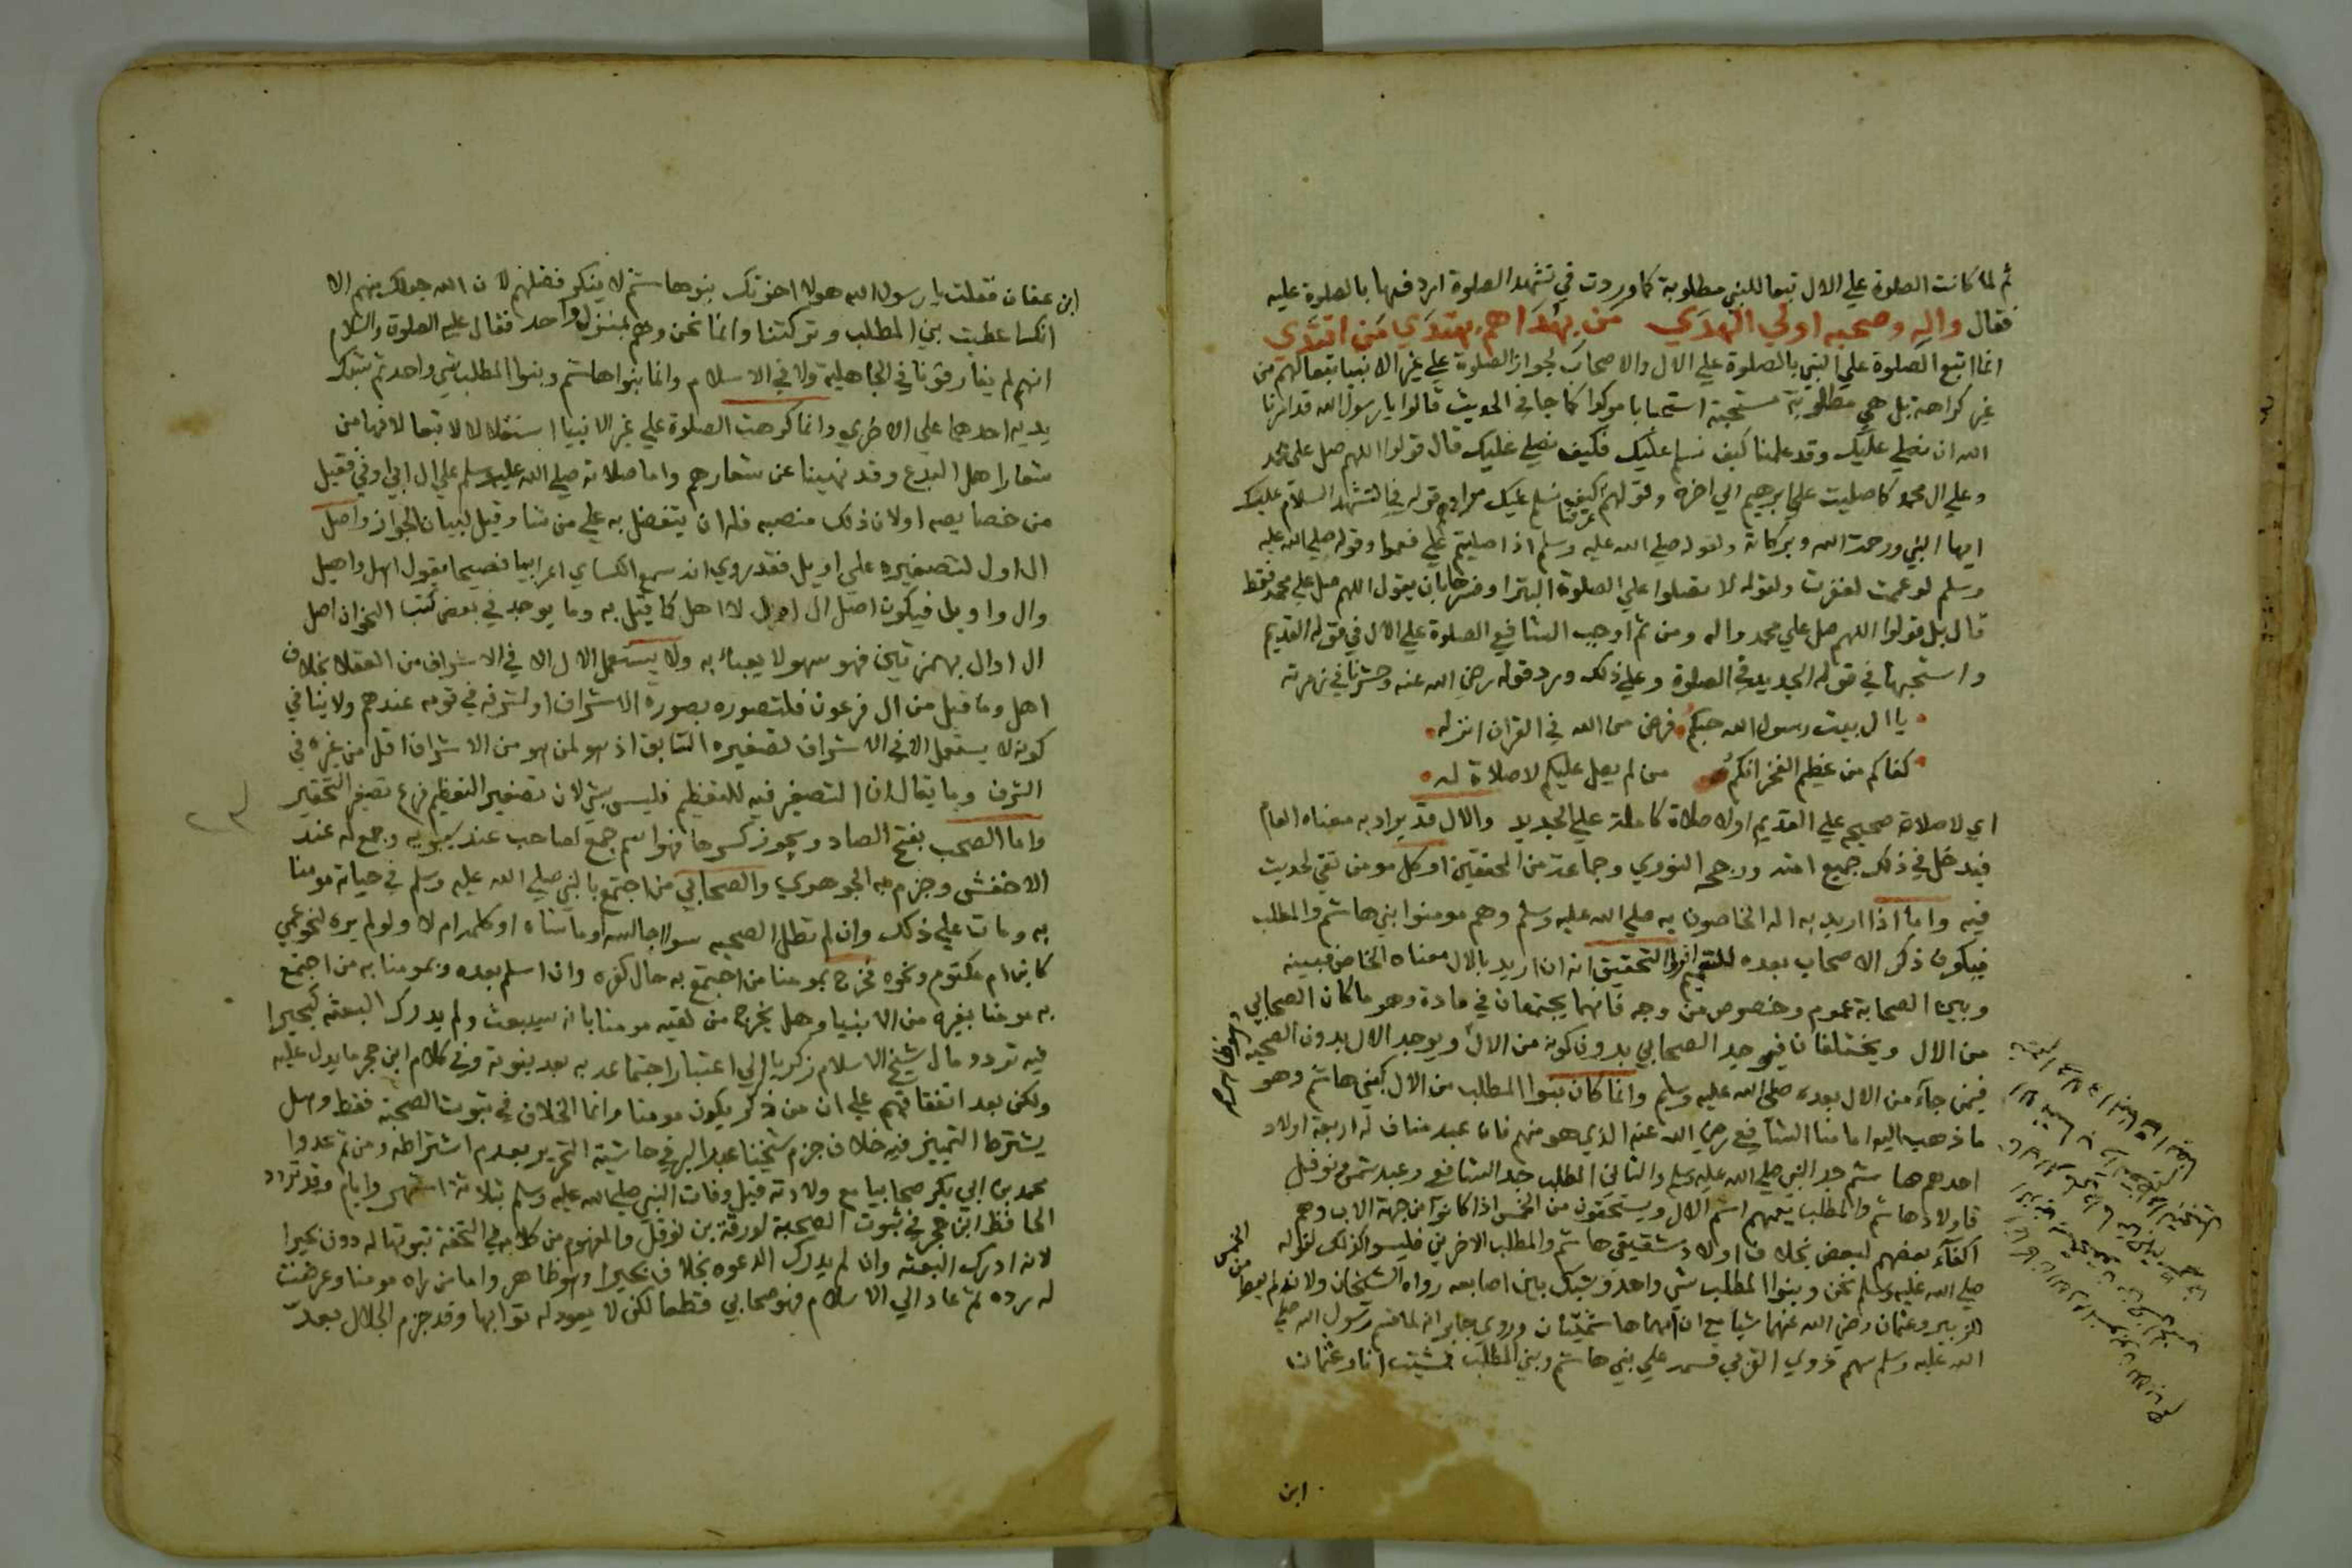 ثم لما كانت الصلوة علي الال تبعا للنبي مطلوبة كما وردت في تشهد الصلوة اردفها بالصلوة عليه
فقال واله وصحبه اولي الهدي من بهداهم يهتدي من اقتدي
انما اتبع الصلوة علي النبي بالصلوة علي الال والاصحاب لجواز الصلوة علي غير الانبيا تبعا لهم من
غير كراهة بل هي مطلوبة مستحبة استحبابا موكدا كما جا في الحديث قالوا يا رسول الله قد امرنا
الله ان نصلي عليك وقد علمنا كيف نسلم عليك فكيف نصلي عليك قال قولوا اللهم صل على محمد
وعلي ال محمد كما صليت علي ابرهيم الي اخره وقولهم كيف نسلم عليك مرادهم قوله في التشهد السلام عليك
ايها النبي ورحمة الله وبركاته ولقوله صلي الله عليه وسلم اذا صليتم علي فعموا وقوله صلي الله عليه
وسلم لو عممت لغفرت ولقوله لا تصلوا علي الصلوة البترا وفسرها بان يقول اللهم صل علي محمد فقط
قال بل قولوا اللهم صل علي محمد واله ومن ثم اوجب الشافعي الصلوة علي الال في قوله القديم
واستحبها في قوله الجديد في الصلوة وعلي ذلك ورد قوله رضي الله عنه وحشرنا في زمرته
يا ال بيت رسول الله حبكم فرض من الله في القران انزله
كفاكم من عظيم الفخر انكم من لم يصل عليكم لا صلاة له
اي لا صلاة صحيحة علي القديم او لا صلاة كاملة علي الجديد والال قد يراد به معناه العام
فيدخل في ذلك جميع امته ورجحه النووي وجماعة من المحققين او كل مومن تقي لحديث
فيه واما اذا اريد به اله الخاصون به صلي الله عليه وسلم وهم مومنوا بني هاشم والمطلب
فيكون ذكر الاصحاب بعده للتعميم اذ التحقيق انه ان اريد بالال معناه الخاص فبينه
وبين الصحابة عموم وخصوص من وجه فانهما يجتمعان في مادة وهو ما كان الصحابي
من الال ويختلفان فيوجد الصحابي بدون كونه من الال ويوجد الال بدون الصحبة
فيمن جاء من الال بعده صلى الله عليه وسلم وانما كان بنوا المطلب من الال كبني هاشم وهو
ما ذهب اليه امامنا الشافعي رضي الله عنه الذي هو منهم فان عبد مناف له اربعة اولاد
احدهم هاشم جد النبي صلي الله عليه وسلم والثاني المطلب جد الشافعي وعبد شمس ونوفل
فاولاد هاشم والمطلب يعمهم اسم الال ويستحقون من الخمس اذا كانوا من جهة الاب وهم
اكفاء بعضهم لبعض بخلاف اولاد شقيقي هاشم والمطلب الاخرين فليسوا كذلك لقوله
صلي الله عليه وسلم نحن وبنوا المطلب شي واحد وشبك بين اصابعه رواه الشيخان ولانه لم يعط
الزبير وعثمان رضي الله عنهما شيا مع ان امهما هاشميتان وروي جابر انه لما قسم رسول الله صلي
الله عليه وسلم سهم ذوي القربي قسمه علي بني هاشم وبني المطلب فمشيت انا وعثمان
من الخمس
ابن
ابن عفان فقلت يا رسول الله هولا اخوتك بنو هاشم لا ينكر فضلهم لان الله جعلك منهم الا
انك اعطيت بني المطلب وتركتنا وانما نحن وهم بمنزل واحد فقال عليه الصلوة والسلام
انهم لم يفارقونا في الجاهلية ولا في الاسلام وانما بنوا هاشم وبنوا المطلب شي واحد ثم شبك
يديه احدهما علي الاخري وانما كرهت الصلوة علي غير الانبيا استقلالا لا تبعا لانها من
شعار اهل البدع وقد نهينا عن شعارهم واما صلاته صلي الله عليه وسلم علي ال ابي اوفي فقيل
من خصايصه او لان ذلك منصبه فله ان يتفضل به علي من شا وقيل لبيان الجواز واصل
ال اول لتصغيره علي اويل فقد روي انه سمع الكساي اعرابيا فصيحا يقول اهل واهيل
وال واويل فيكون اصل ال اول لا اهل كما قيل به وما يوجد في بعض كتب النحو ان اصل
ال اوال بهمزتين فهو سهو لا يعبا به ولا يستعمل الال الا في الاشراف من العقلا بخلاف
اهل وما قيل من ال فرعون فلتصوره بصورة الاشراف او لشرفه في قومه عندهم ولا ينافي
كونه لا يستعمل الا في الاشراف تصغيره السابق اذ هو لمن هو من الاشراف اقل من غيره في
الشرف وما يقال ان التصغير فيه للتعظيم فليس بشي لان تصغير التعظيم فرع تصغير التحقير
واما الصحب بفتح الصاد ويجوز كسرها فهو اسم جمع لصاحب عند سيبويه وجمع له عند
الاخفش وجزم به الجوهري والصحابي من اجتمع بالنبي صلي الله عليه وسلم في حياته مومنا
به ومات علي ذلك وان لم تطل الصحبه سوا جالسه او ماشاه او كلمه ام لا ولو لم يره لنحو عمي
كابن ام مكتوم ونحوه فخرج بمومنا من اجتمع به حال كفره وان اسلم بعده وبمومنا به من اجتمع
به مومنا بغيره من الانبيا وهل يخرج من لقيه مومنا بانه سيبعث ولم يدرك البعثه كبحيرا
فيه تردد مال شيخ الاسلام زكريا الي اعتبار اجتماعه به بعد نبوته وفي كلام ابن حجر ما يدل عليه
ولكن بعد اتفاقهم علي ان من ذكر يكون مومنا وانما الخلاف في ثبوت الصحبة فقط وهل
يشترط التمييز فيه خلاف جزم شيخنا عبد البر في حاشية التحرير بعدم اشتراطه ومن ثم عدوا
محمد بن ابي بكر صحابيا مع ولادته قبل وفات النبي صلي الله عليه وسلم بثلاثة اشهر وايام وقد تردد
الحافظ ابن حجر في ثبوت الصحبة لورقة بن نوفل والمفهوم من كلامه في التحفة ثبوتها له دون بحيرا
لانه ادرك البعثه وان لم يدرك الدعوه بخلاف بحيرا وهو ظاهر واما من راه مومنا وعرضت
له رده ثم عاد الي الاسلام فهو صحابي قطعا لكن لا يعود له ثوابها وقد جزم الجلال بعد